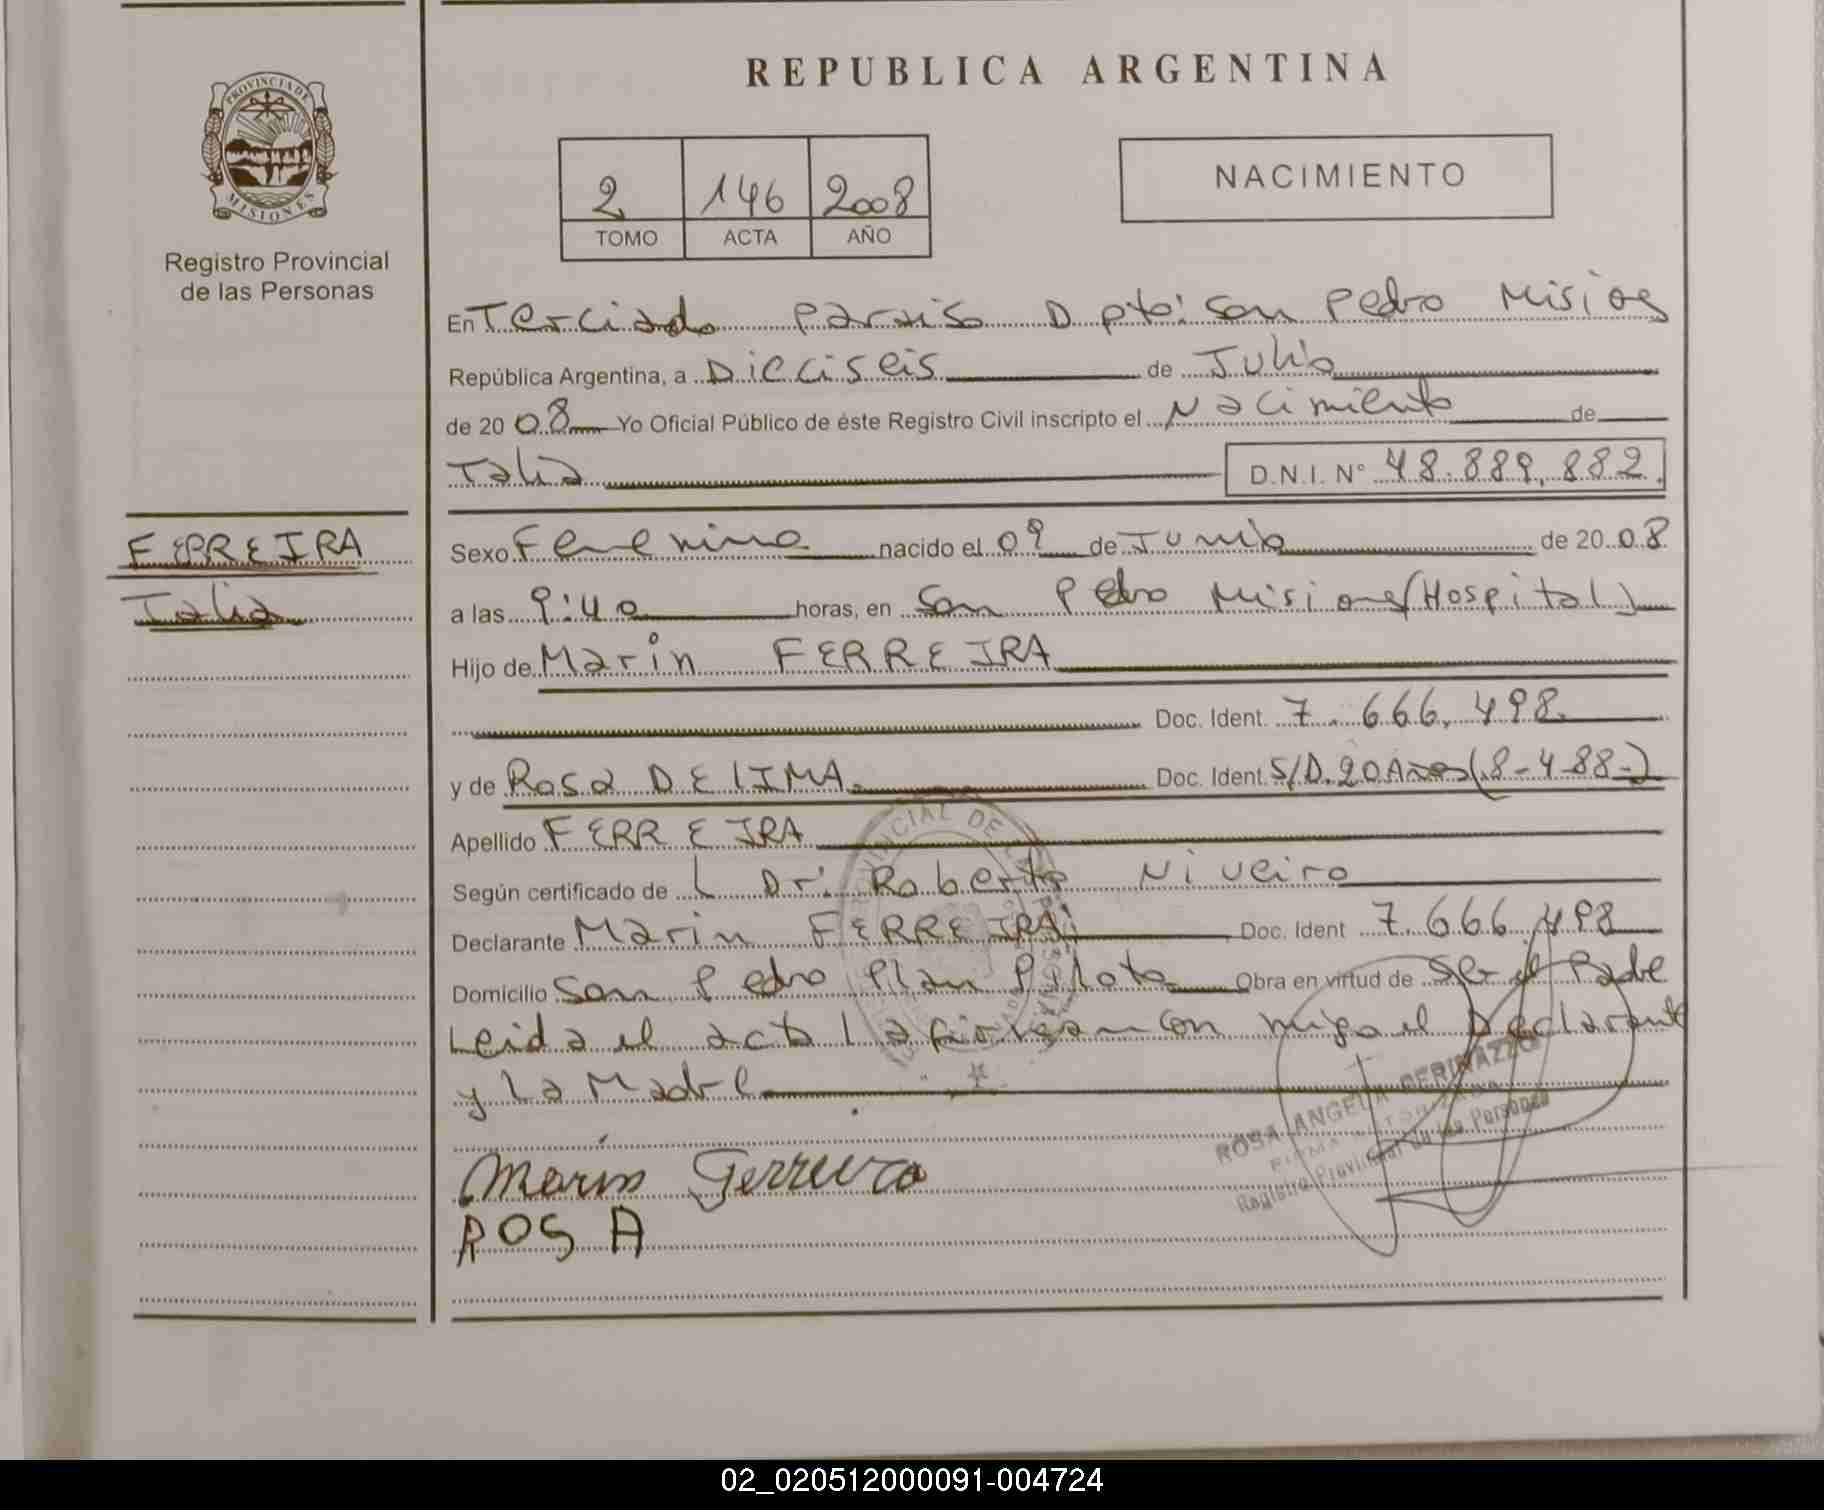 REPUBLICA ARGENTINA
PROVINCIA DE
MISIONES
Registro Provincial
de las Personas
2 146 2008
TOMO ACTA AÑO
NACIMIENTO
En Terciado Paraiso Dpto: San Pedro Misiones
República Argentina, a Dieciseis de Julio
de 2008 Yo Oficial Público de éste Registro Civil inscripto el Nacimiento de
Talia D.N.I. Nº 48.889.882
FERREIRA
Talia
Sexo Femenino nacido el 09 de Junio de 2008
a las 9:40 horas, en San Pedro Misiones (Hospital)
Hijo de Marin FERREIRA
Doc. Ident. 7.666.498
y de Rosa DE LIMA Doc. Ident. S/D. 20 Años (8-4-88-)
Apellido FERREIRA
Según certificado de L Dr. Roberto Niveiro
Declarante Marin FERREIRA Doc. Ident 7.666.498
Domicilio San Pedro Plan Piloto Obra en virtud de Ser el Padre
Leida el acta la firman con migo el Declarante
y La Madre
ROSA ANGELA
Registro Provincial de las Personas
Marin Ferreira
ROSA
02_020512000091-004724